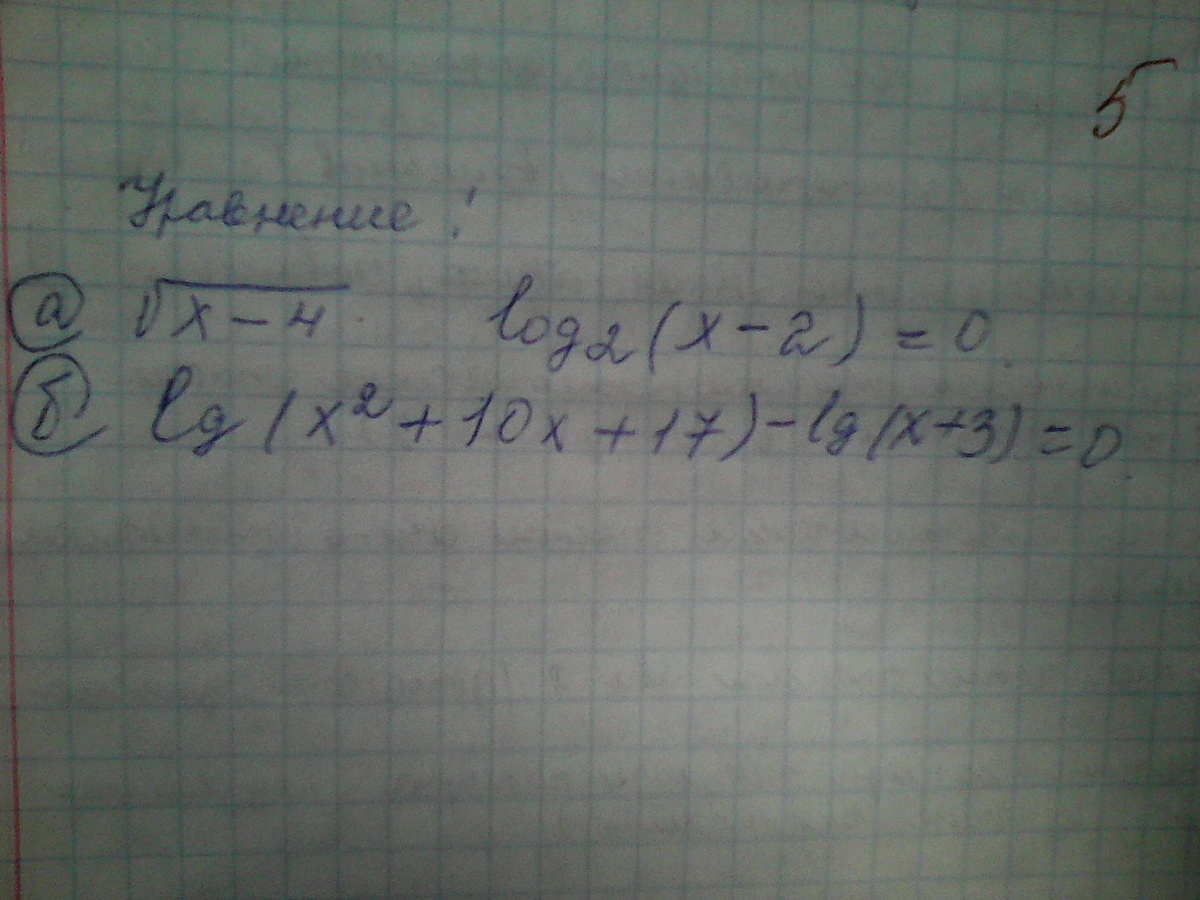 5
Уравнение:
а) √x-4 . log₂(x-2)=0.
б) lg(x²+10x+17)-lg(x+3)=0.